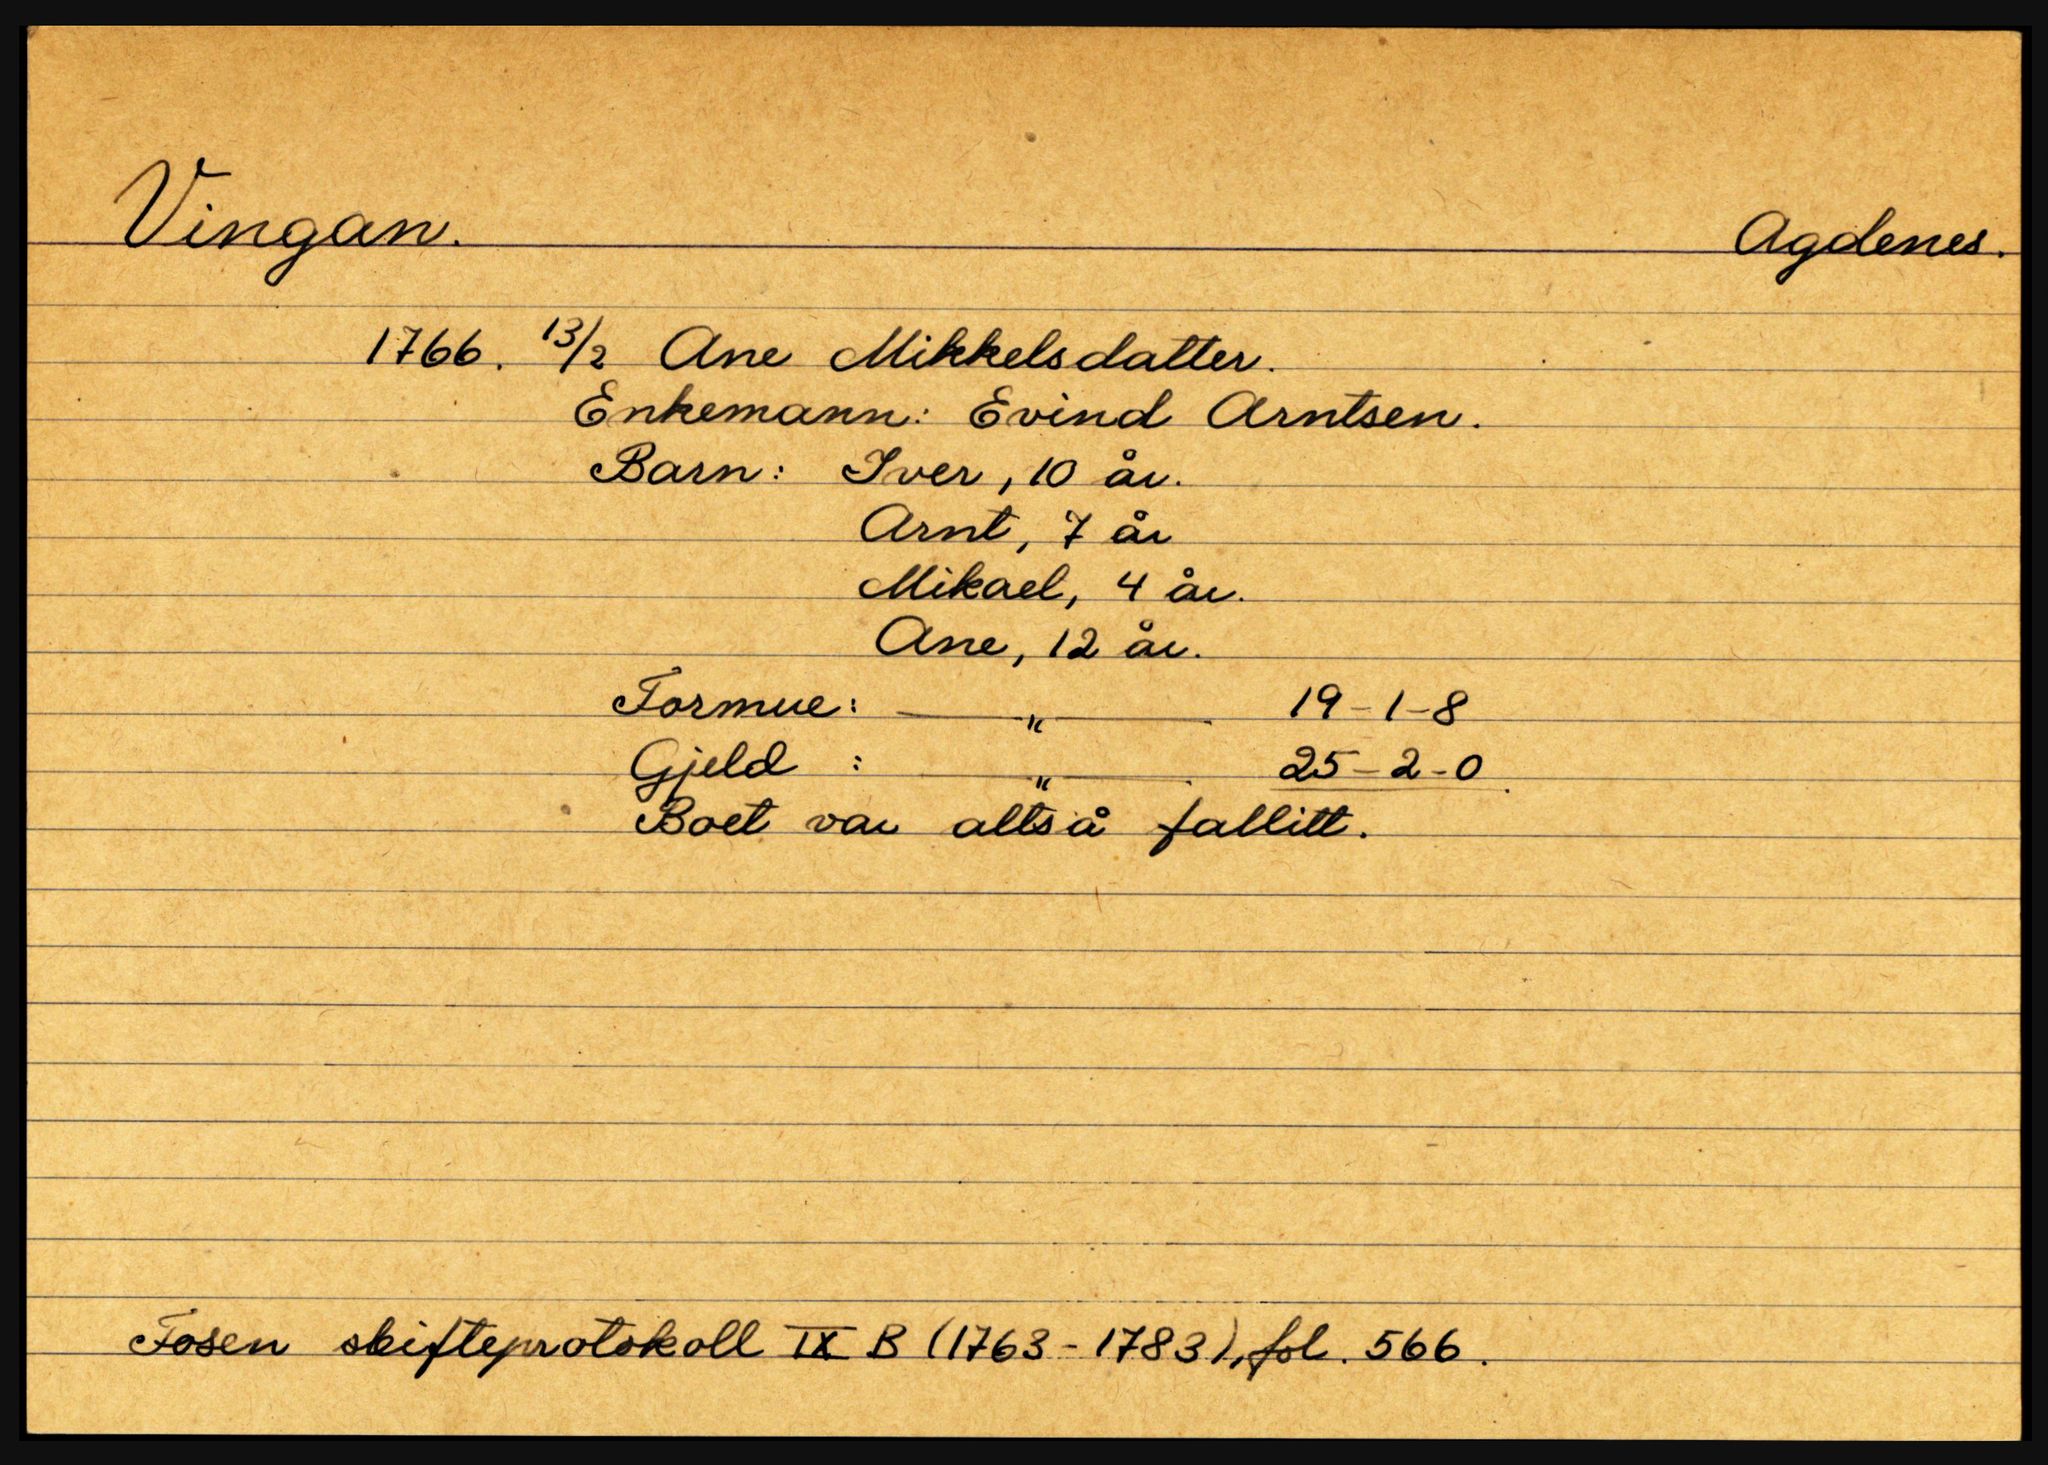 Vingan. Agdenes.
1766. 13/2 Ane Mikkelsdatter.
Enkemann: Evind Arntsen.
Barn: Iver, 10 år.
Arnt, 7 år
Mikael, 4 år.
Ane, 12 år.
Formue: — " — 19-1-8
Gjeld : — " — 25-2-0
Boet var altså fallitt.
Fosen skifteprotokoll IX B (1763-1783), fol. 566.